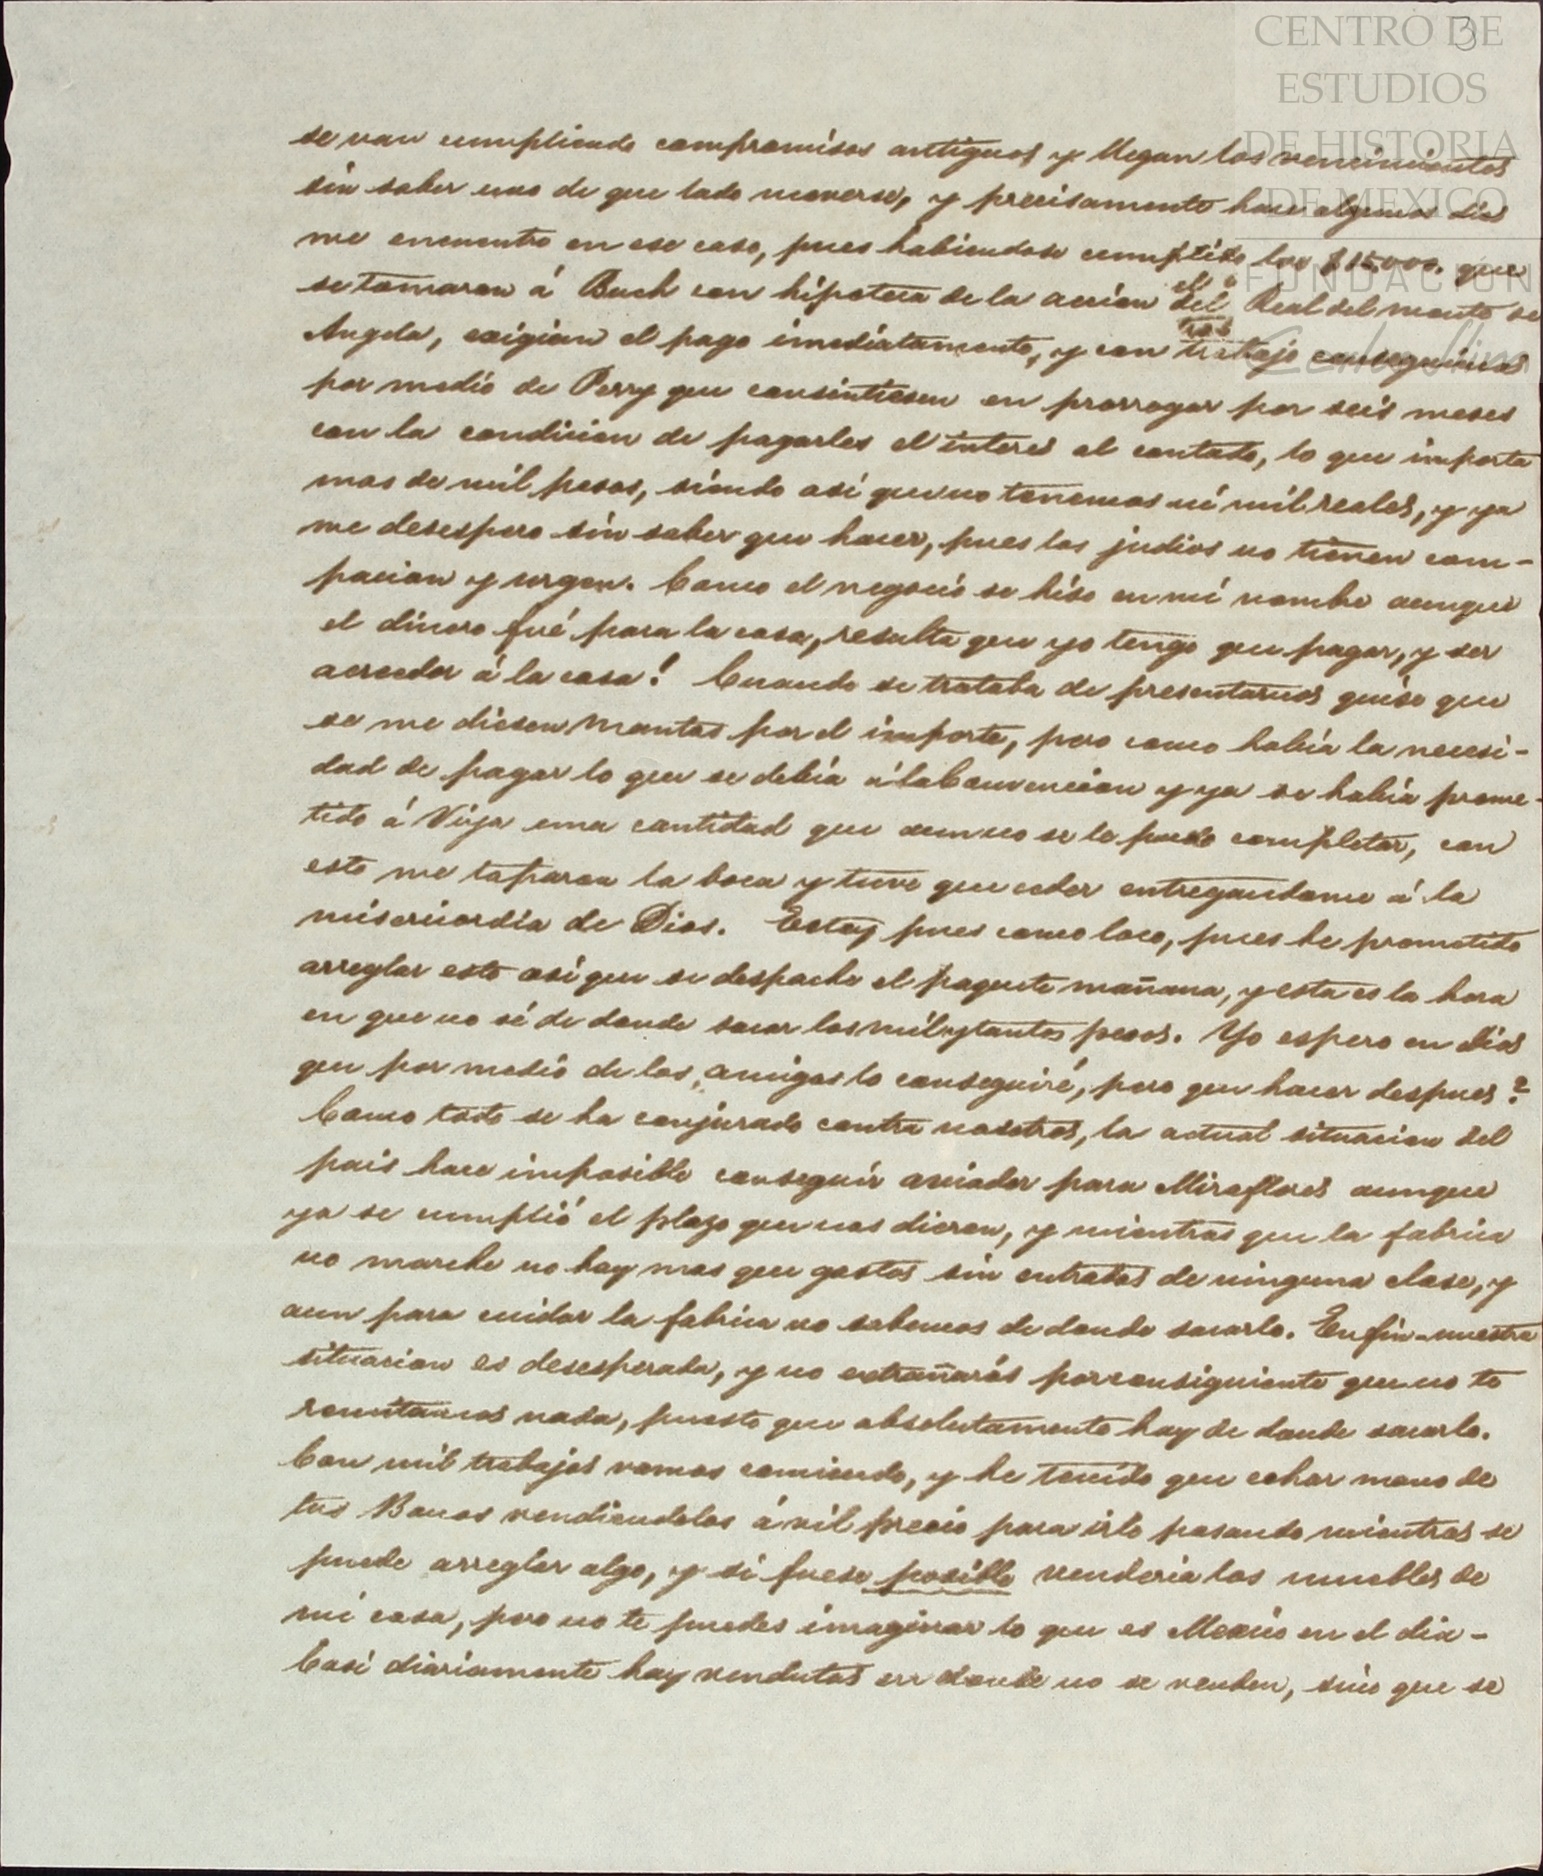 CENTRO DE
ESTUDIOS
DE HISTORIA
DE MEXICO
FUNDACION
3
se van cumpliendo compromisos antiguos y llegan los vencimientos
sin saber uno de que lado moverse, y precisamente hace algunos dias
me encuentro en ese caso, pues habiendose cumplido los $15,000. que
se tomaron á Buch con hipoteca de la accion del Real del monte de
Angela, exigian el pago imediatamente, y con trabajo conseguimos
por medio de Perry que consintiesen en prorrogar por seis meses
con la condicion de pagarles el interes al contado, lo que importa
mas de mil pesos, siendo asi que no tenemos ni mil reales, y ya
me desespero sin saber que hacer, pues los judios no tienen com-
pacion y urgen. Como el negocio se hiso en mi nombre aunque
el dinero fué para la casa, resulta que yo tengo que pagar, y ser
acreedor á la casa! Cuando se trataba de presentarnos quise que
se me diesen mantas por el importe, pero como habia la necesi-
dad de pagar lo que se debia á la Convencion y ya se habia prome-
tido á Viya una cantidad que aun no se le pudo completar, con
esto me taparon la boca y tuve que ceder entregandome á la
misericordia de Dios. Estoy pues como loco, pues he prometido
arreglar esto asi que se despache el paquete mañana, y esta es la hora
en que no sé de donde sacar los mil y tantos pesos. Yo espero en Dios
que por medio de los amigos lo conseguiré, pero que hacer despues?
Como todo se ha conjurado contra nosotros, la actual situacion del
pais hace imposible conseguir aviador para Miraflores aunque
ya se cumplió el plazo que nos dieron, y mientras que la fabrica
no marche no hay mas que gastos sin entradas de ninguna clase, y
aun para cuidar la fabrica no sabemos de donde sacarlo. En fin nuestra
situacion es desesperada, y no extrañarás por consiguiente que no te
remitamos nada, puesto que absolutamente hay de donde sacarlo.
Con mil trabajos vamos comiendo, y he tenido que echar mano de
tus Bonos vendiendolos á vil precio para irlo pasando mientras se
puede arreglar algo, y si fuese posible venderia los muebles de
mi casa, pero no te puedes imaginar lo que es Mexico en el dia-
Casi diariamente hay vendutas en donde no se venden, sino que se